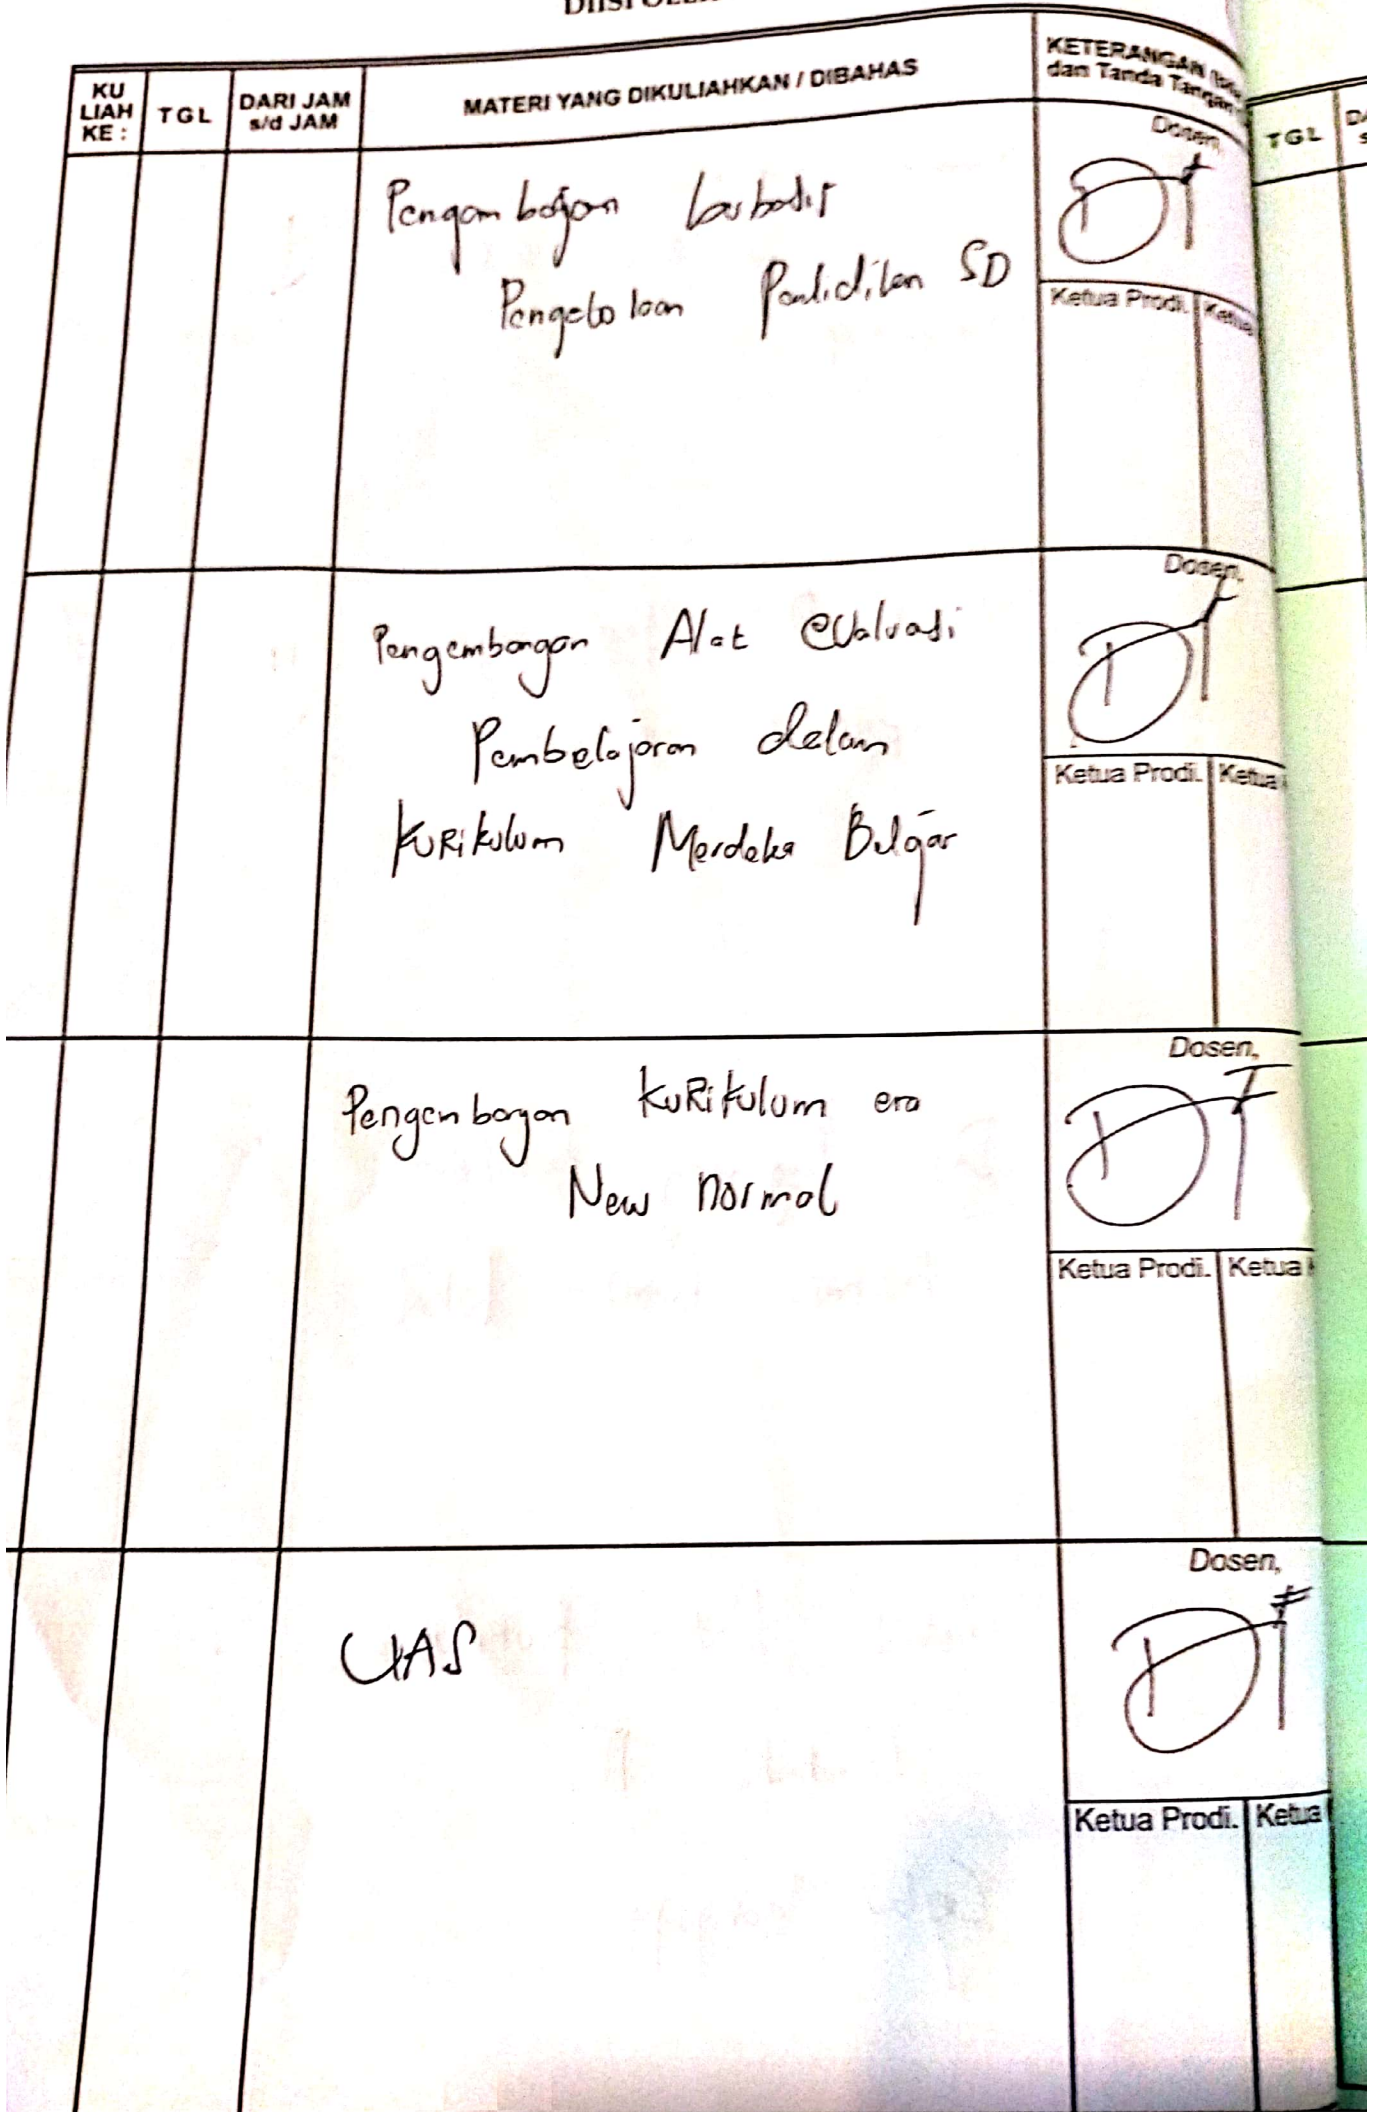 KU LIAH KE :
TGL
DARI JAM s/d JAM
MATERI YANG DIKULIAHKAN / DIBAHAS
KETERANGAN
dan Tanda Tangan
TGL
Dosen,
Pengembangan
Pengelolaan Pendidikan SD
Ketua Prodi. Ketua
Dosen,
Pengembangan Alat evaluasi
Pembelajaran dalam
KuRikulum Merdeka Belajar
Ketua Prodi. Ketua
Dosen,
Pengembangan KuRikulum era
New normal
Ketua Prodi. Ketua
Dosen,
UAS
Ketua Prodi. Ketua